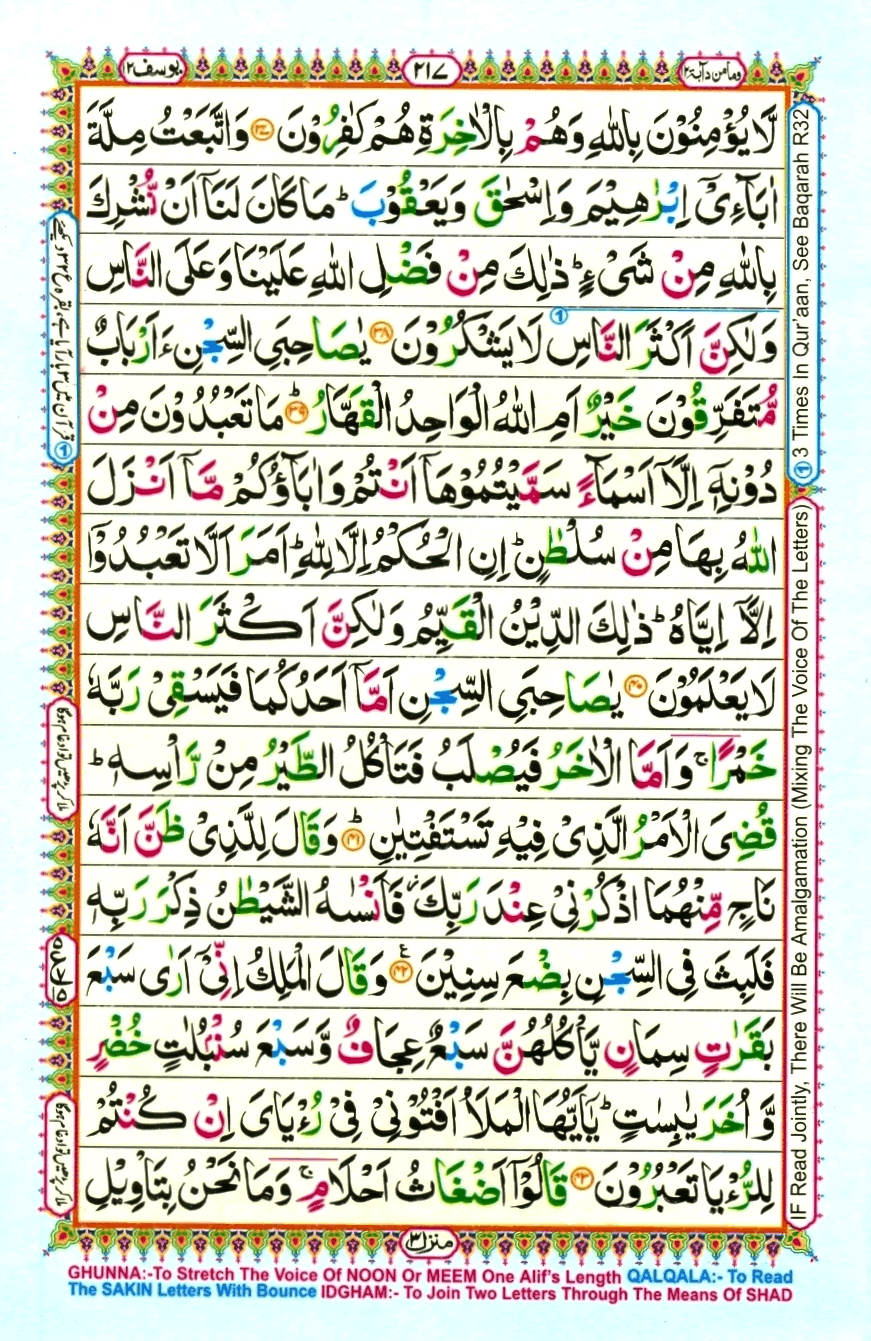 يوسف ١٢
٢١٧
ومامن دآبة ١٢
لَّا يُؤْمِنُوْنَ بِاللّٰهِ وَهُمْ بِالْاٰخِرَةِ هُمْ كٰفِرُوْنَ ﴿٣٧﴾ وَاتَّبَعْتُ مِلَّةَ
اٰبَآءِىْٓ اِبْرٰهِيْمَ وَاِسْحٰقَ وَيَعْقُوْبَ ؕ مَا كَانَ لَنَآ اَنْ نُّشْرِكَ
بِاللّٰهِ مِنْ شَىْءٍ ؕ ذٰلِكَ مِنْ فَضْلِ اللّٰهِ عَلَيْنَا وَعَلَى النَّاسِ
وَلٰكِنَّ اَكْثَرَ النَّاسِ لَا يَشْكُرُوْنَ ﴿٣٨﴾ يٰصَاحِبَىِ السِّجْنِ ءَاَرْبَابٌ
مُّتَفَرِّقُوْنَ خَيْرٌ اَمِ اللّٰهُ الْوَاحِدُ الْقَهَّارُ ؕ ﴿٣٩﴾ مَا تَعْبُدُوْنَ مِنْ
دُوْنِهٖٓ اِلَّآ اَسْمَآءً سَمَّيْتُمُوْهَآ اَنْتُمْ وَاٰبَآؤُكُمْ مَّآ اَنْزَلَ
اللّٰهُ بِهَا مِنْ سُلْطٰنٍ ؕ اِنِ الْحُكْمُ اِلَّا لِلّٰهِ ؕ اَمَرَ اَلَّا تَعْبُدُوْٓا
اِلَّآ اِيَّاهُ ؕ ذٰلِكَ الدِّيْنُ الْقَيِّمُ وَلٰكِنَّ اَكْثَرَ النَّاسِ
لَا يَعْلَمُوْنَ ﴿٤٠﴾ يٰصَاحِبَىِ السِّجْنِ اَمَّآ اَحَدُكُمَا فَيَسْقِىْ رَبَّهٗ
خَمْرًا ۚ وَاَمَّا الْاٰخَرُ فَيُصْلَبُ فَتَاْكُلُ الطَّيْرُ مِنْ رَّاْسِهٖ ؕ
قُضِىَ الْاَمْرُ الَّذِىْ فِيْهِ تَسْتَفْتِيٰنِ ؕ ﴿٤١﴾ وَقَالَ لِلَّذِىْ ظَنَّ اَنَّهٗ
نَاجٍ مِّنْهُمَا اذْكُرْنِىْ عِنْدَ رَبِّكَ ؗ فَاَنْسٰىهُ الشَّيْطٰنُ ذِكْرَ رَبِّهٖ
فَلَبِثَ فِى السِّجْنِ بِضْعَ سِنِيْنَ ﴿٤٢﴾ وَقَالَ الْمَلِكُ اِنِّىْٓ اَرٰى سَبْعَ
بَقَرٰتٍ سِمَانٍ يَّاْكُلُهُنَّ سَبْعٌ عِجَافٌ وَّسَبْعَ سُنْۢبُلٰتٍ خُضْرٍ
وَّاُخَرَ يٰبِسٰتٍ ؕ يٰٓاَيُّهَا الْمَلَاُ اَفْتُوْنِىْ فِىْ رُءْيَاىَ اِنْ كُنْتُمْ
لِلرُّءْيَا تَعْبُرُوْنَ ﴿٤٣﴾ قَالُوْٓا اَضْغَاثُ اَحْلَامٍ ۚ وَمَا نَحْنُ بِتَاْوِيْلِ
منزل ٣
① 3 Times In Qur'aan, See Baqarah R32
IF Read Jointly, There Will Be Amalgamation (Mixing The Voice Of The Letters)
GHUNNA:-To Stretch The Voice Of NOON Or MEEM One Alif's Length QALQALA:- To Read
The SAKIN Letters With Bounce IDGHAM:- To Join Two Letters Through The Means Of SHAD